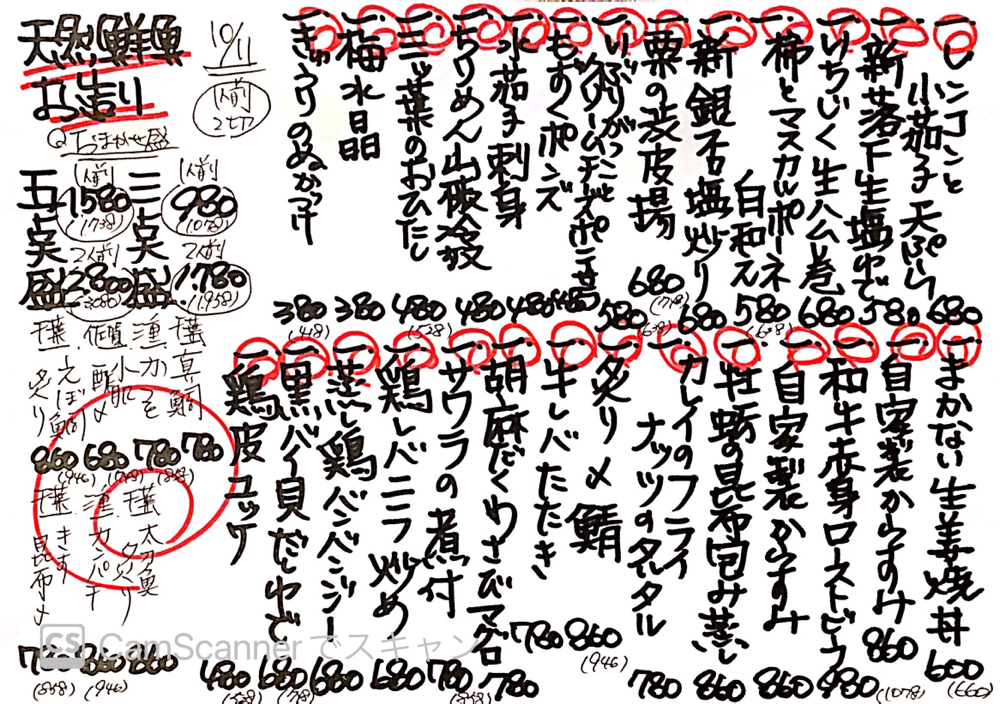 一. レンコンと小茄子天ぷら 680
一. 新落下生塩ゆで 580
一. いちじく生ハム巻 680
一. 柿とマスカルポーネ白和え 580 (638)
一. 新銀杏塩炒り 680
一. 粟の渋皮揚 680 (748)
一. いぶりがっことクリームチーズポテサラ 580 (638)
一. もずくポンズ 480
一. 水茄子刺身 480
一. ちりめん山椒冷奴 480
一. 三ッ葉のおひたし 480 (528)
一. 梅水晶 380
一. きゅうりのぬかづけ 380 (418)
10/11
天然鮮魚
お造り
1人前
2切
おまかせ盛
三点盛
1人前
980
(1078)
2人前
1.780
(1958)
五点盛
1人前
1580
(1738)
2人前
2.800
(3080)
千葉 真鯛 780 (858)
かつを 780
佐賀 小肌酢〆 680 (748)
千葉 えぼ鯛炙り 860 (946)
千葉 太刀魚炙り 860
カンパチ 860 (946)
千葉 きす昆布〆 780 (858)
一. まかない生姜焼丼 600 (660)
一. 自家製からすみ 860
一. 和牛赤身ローストビーフ 980 (1078)
一. 自家製からすみ 860
一. 牡蛎の昆布包み蒸し 860
一. カレイのフライナッツのタルタル 780
一. 炙り〆鯖 860 (946)
一. 牛レバたたき 780
一. 胡麻だくわさびマグロ 780
一. サワラの煮付 780 (858)
一. 鶏レバニラ炒め 680
一. 蒸し鶏バンバンジー 680
一. 黒バイ貝だしゆで 680 (748)
一. 鶏皮ユッケ 480 (528)
CS CamScannerでスキャン